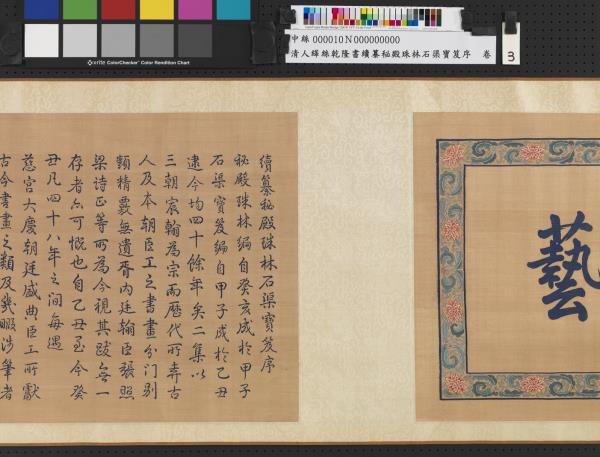 ColorChecker Color Rendition Chart
中絲000010N000000000
清人緙絲乾隆書續纂秘殿珠林石渠寶笈序 卷
3
藝
續纂秘殿珠林石渠寶笈序
秘殿珠林編自癸亥成於甲子
石渠寶笈編自甲子成於乙丑
逮今均四十餘年矣二集以
三朝宸翰為宗而歷代所弆古
人及本朝臣工之書畫分门别
類精覈無遺胥内廷翰臣張照
梁诗正等所為今視其跋無一
存者亦可慨也自乙丑至今癸
丑凡四十八年之间每遇
慈宫大慶朝廷盛典臣工所獻
古今書畫之類及幾暇涉筆者